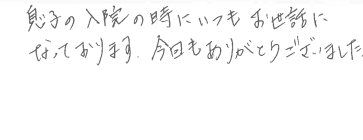 息子の入院の時にいつもお世話に
なっております. 今回もありがとうございました